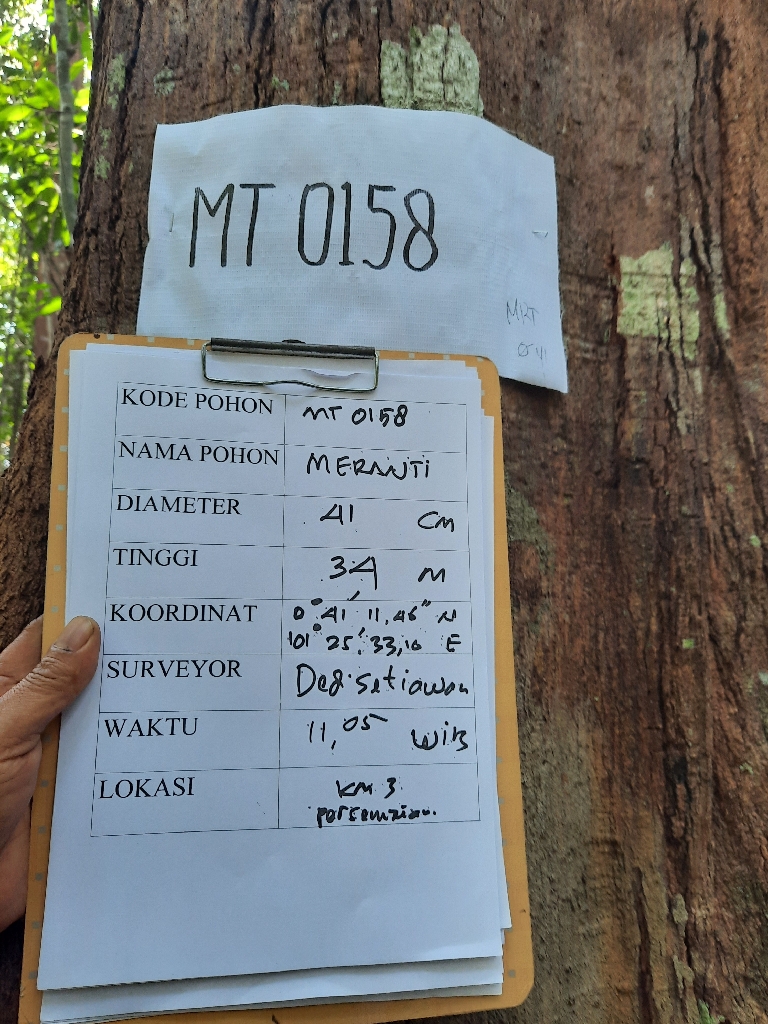 MT 0158
MKT
KODE POHON MT 0158
NAMA POHON MERANTI
DIAMETER 41 CM
TINGGI 34 M
KOORDINAT 0° 41' 11,46" N
101° 25' 33,16 E
SURVEYOR Dedi setiawan
WAKTU 11,05 WIB
LOKASI KM 3